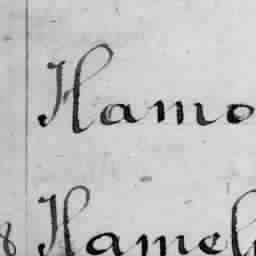 Hamo
8 Hamel